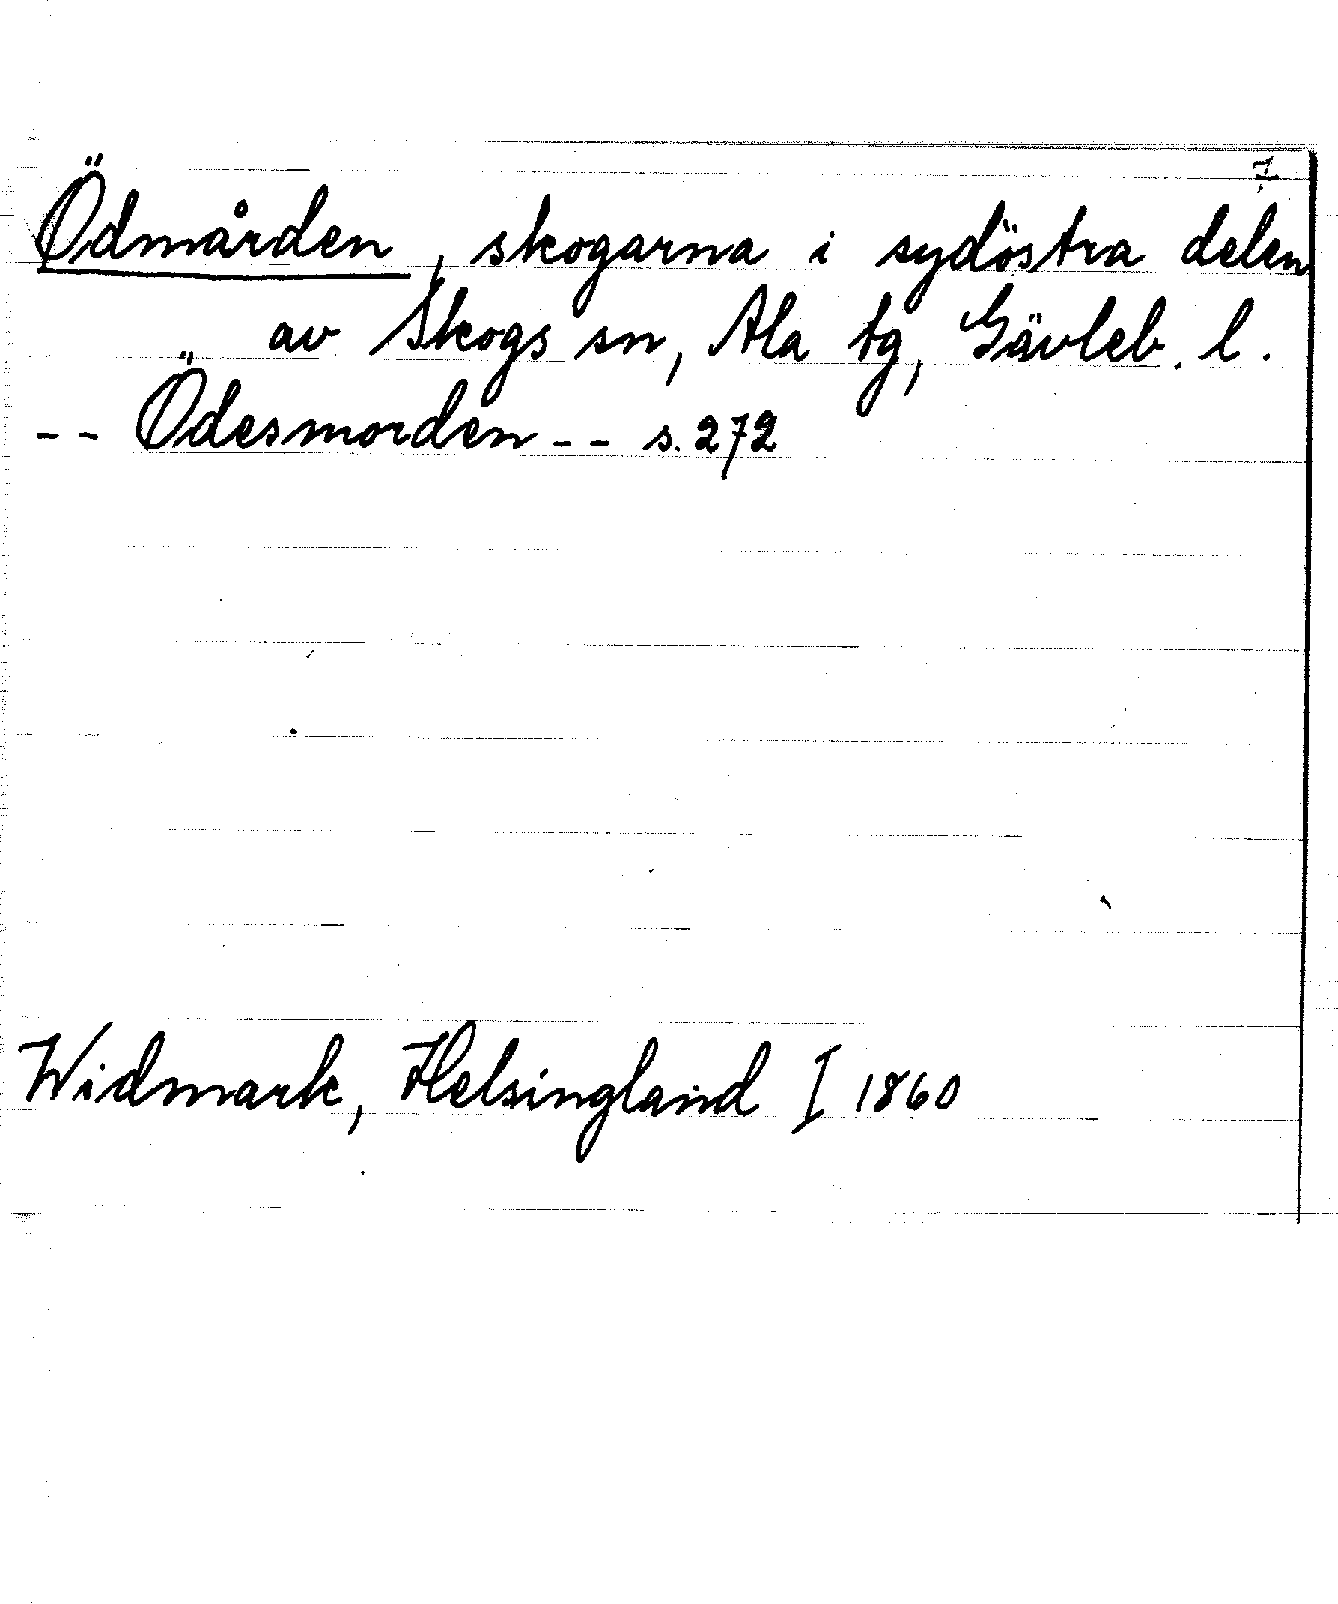 7
Ödmården, skogarna i sydöstra delen
av Skogs sn, Ala tg, Gävleb. l.
-- Ödesmorden -- s. 272
Widmark, Helsingland I 1860